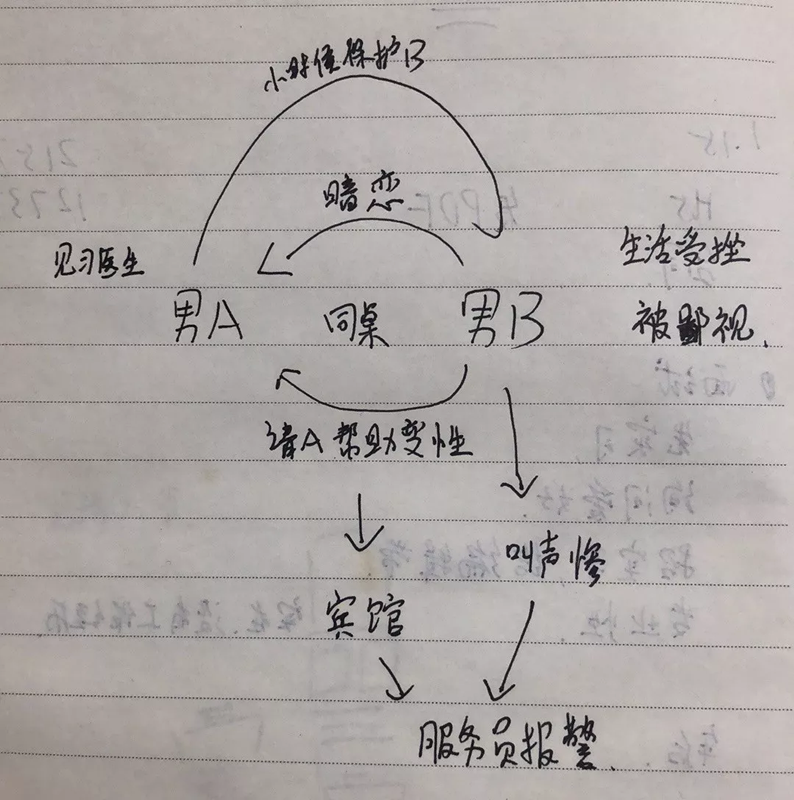 小时候保护B
暗恋
见习医生
生活受挫
男A 同桌 男B
被鄙视.
请A帮助变性
叫声惨
宾馆
服务员报警.